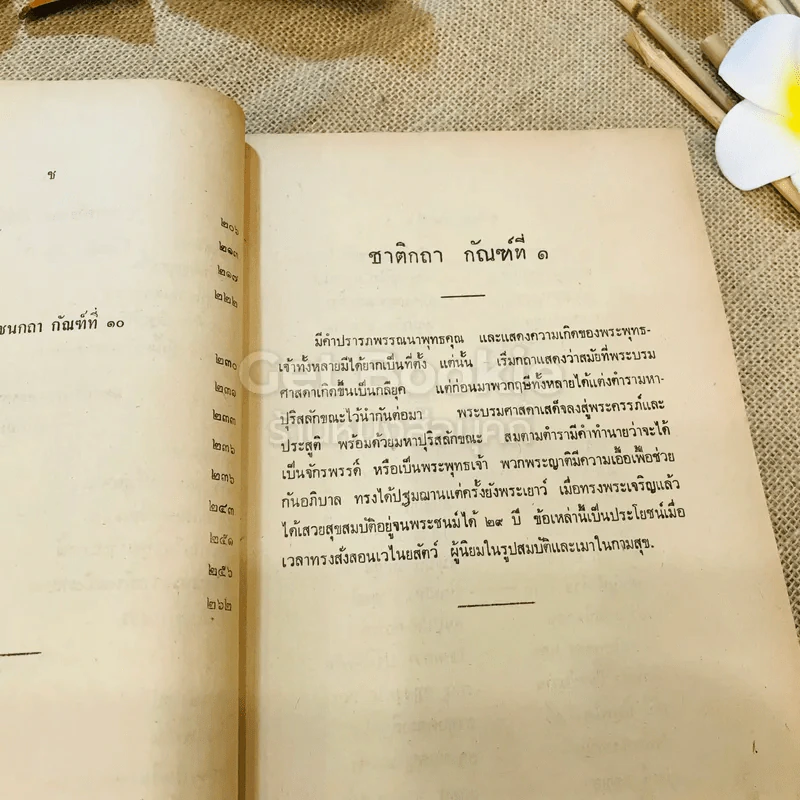 ช
๒๐๖
๒๑๓
๒๑๗
๒๒๒
ชนกถา กัณฑ์ที่ ๑๐
๒๓๐
๒๓๑
๒๓๓
๒๓๖
๒๓๖
๒๔๓
๒๕๑
๒๕๖
๒๖๒
ชาติกถา กัณฑ์ที่ ๑
มีคำปรารภพรรณนาพุทธคุณ และแสดงความเกิดของพระพุทธ-
เจ้าทั้งหลายมีได้ยากเป็นที่ตั้ง แต่นั้น เริ่มกถาแสดงว่าสมัยที่พระบรม
ศาสดาเกิดขึ้นเป็นกลียุค แต่ก่อนมาพวกฤษีทั้งหลายได้แต่งตำรามหา-
ปุริสลักขณะไว้นำกันต่อมา พระบรมศาสดาเสด็จลงสู่พระครรภ์และ
ประสูติ พร้อมด้วยมหาปุริสลักขณะ สมตามตำรามีคำทำนายว่าจะได้
เป็นจักรพรรดิ์ หรือเป็นพระพุทธเจ้า พวกพระญาติมีความเอื้อเฟื้อช่วย
กันอภิบาล ทรงได้ปฐมฌานแต่ครั้งยังพระเยาว์ เมื่อทรงพระเจริญแล้ว
ได้เสวยสุขสมบัติอยู่จนพระชนม์ได้ ๒๙ ปี ข้อเหล่านี้เป็นประโยชน์เมื่อ
เวลาทรงสั่งสอนเวไนยสัตว์ ผู้นิยมในรูปสมบัติและเมาในกามสุข.